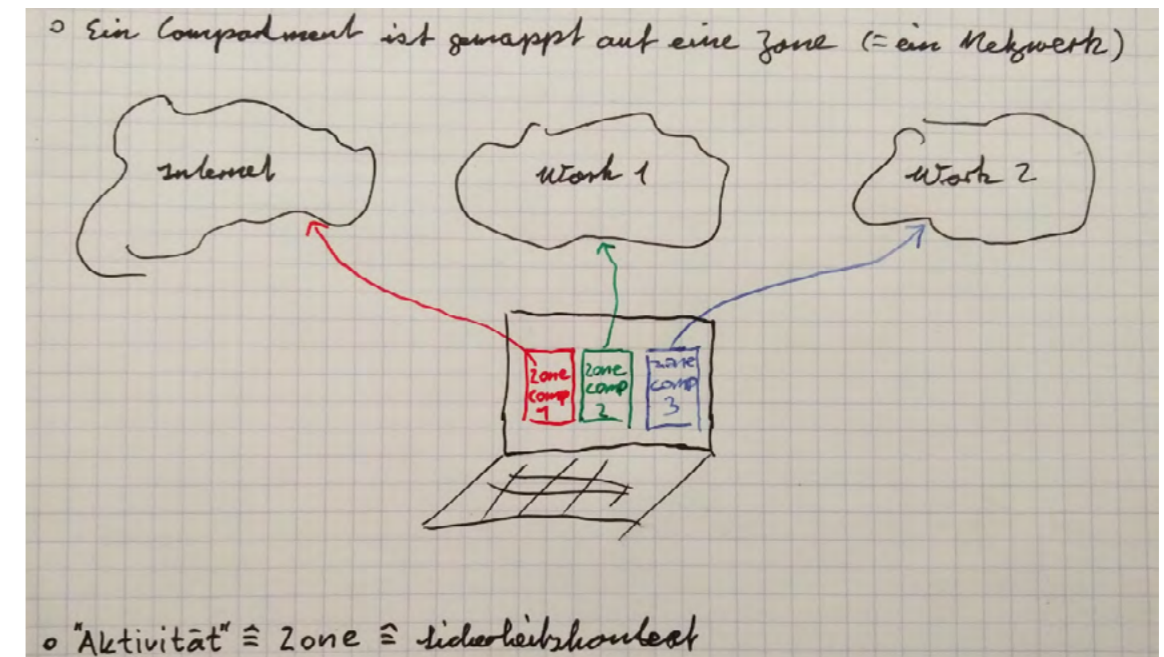 o Ein Compartment ist gemappt auf eine Zone (= ein Netzwerk)
Internet
Work 1
Work 2
Zone
comp
1
Zone
comp
2
Zone
comp
3
o "Aktivität" ≙ Zone ≙ Sicherheitskontext